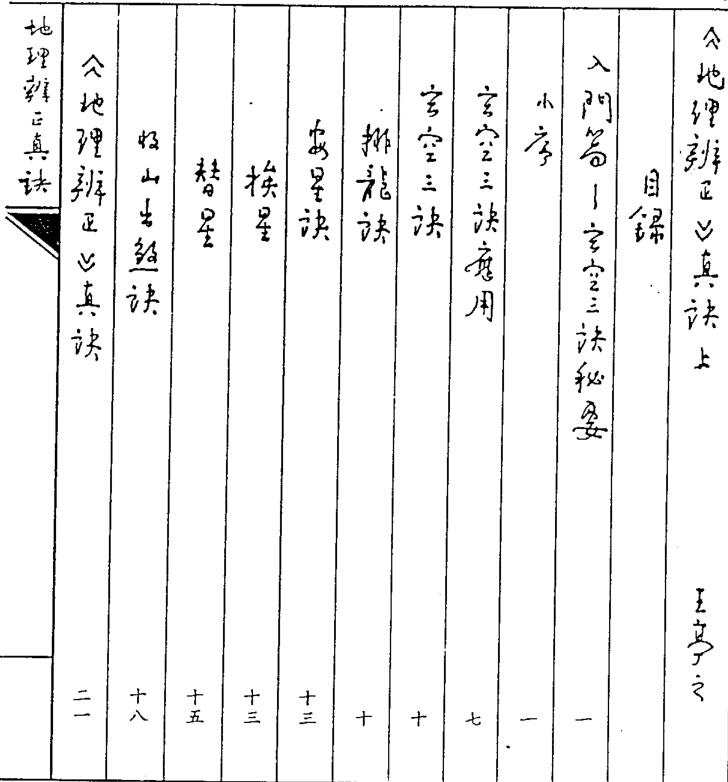 《地理辨正》真訣 上 王亭之
目錄
入門篇－玄空三訣秘要 一
小序 一
玄空三訣應用 七
玄空三訣 十
排龍訣 十
安星訣 十三
挨星 十三
替星 十五
收山出煞訣 十八
《地理辨正》真訣 二一
地理辨正真訣